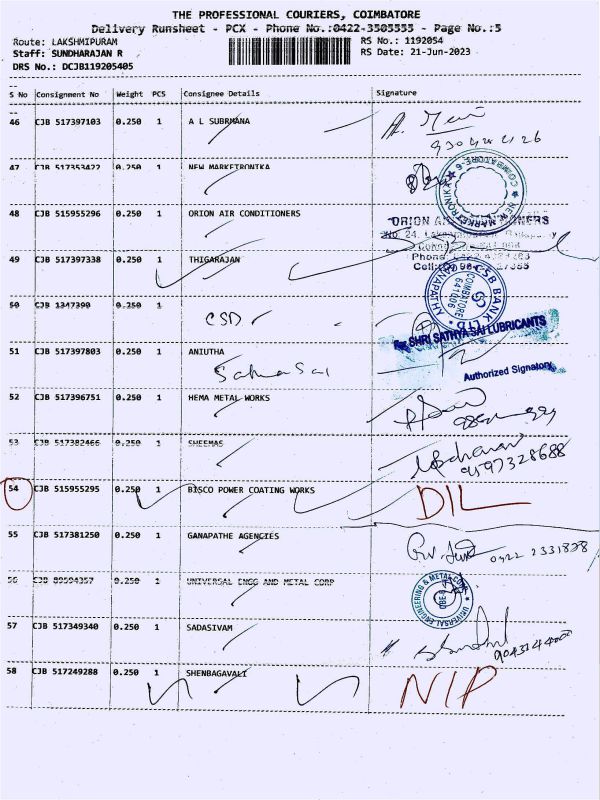 THE PROFESSIONAL COURIERS, COIMBATORE
Delivery Runsheet - PCX - Phone No.:0422-3505555 - Page No.:5
Route: LAKSHMIPURAM RS No.: 1192054
Staff: SUNDHARAJAN R RS Date: 21-Jun-2023
DRS No.: DCJB119205405
S No Consignment No Weight PCS Consignee Details Signature
46 CJB 517397103 0.250 1 A L SUBRMANA
47 CJB 517353422 0.250 1 NEW MARKETRONIKA
COIMBATORE-6 ★ NEW MARKETRONIKA ★
48 CJB 515955296 0.250 1 ORION AIR CONDITIONERS
ORION AIR CONDITIONERS
No. 24,
49 CJB 517397338 0.250 1 THIGARAJAN
Phone
Cell:
50 CJB 1347390 0.250 1
CSB
CSB BANK
COIMBATORE
641006
51 CJB 517397803 0.250 1 ANIUTHA
Sathya Sai
For SHRI SATHYA SAI LUBRICANTS
Authorized Signatory
52 CJB 517396751 0.250 1 HEMA METAL WORKS
53 CJB 517382466 0.250 1 SHEEMAS
9597328688
54 CJB 515955295 0.250 1 BISCO POWER COATING WORKS DIL
55 CJB 517381250 0.250 1 GANAPATHE AGENCIES
0422 2331828
56 CJB 89594357 0.250 1 UNIVERSAL ENGG AND METAL CORP
UNIVERSAL ENGINEERING & METAL CORP
57 CJB 517349340 0.250 1 SADASIVAM
58 CJB 517249288 0.250 1 SHENBAGAVALI NIP